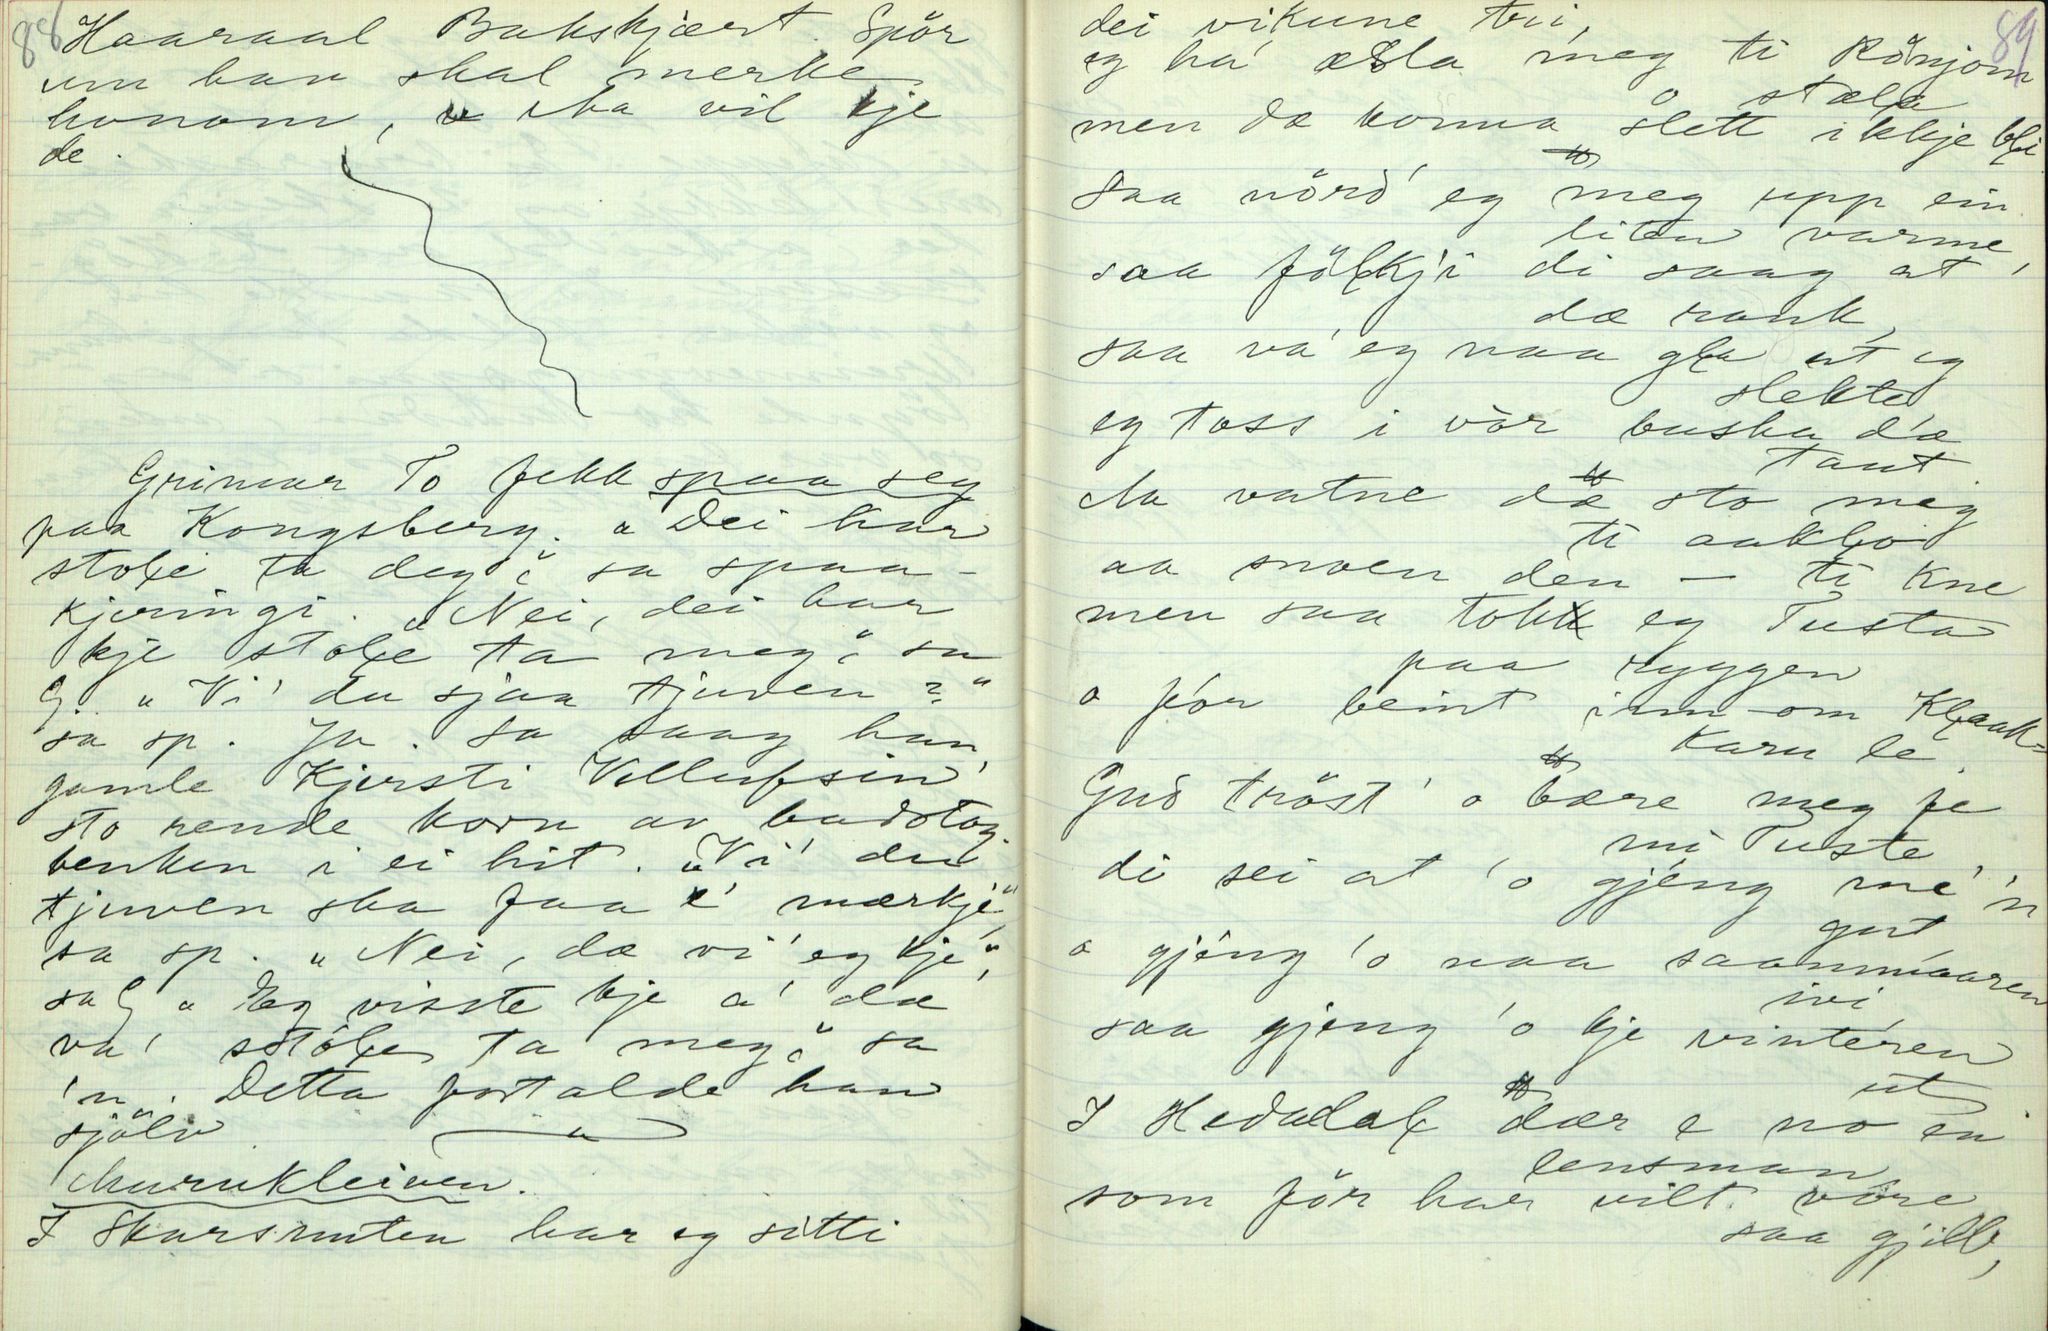 88
Haaraal Bakskjært. Spör
um han skal merke
honom, ska vil kje
de.
Grimar To fekk spaa seg
paa Kongsberg. „Dei har
stole ta deg“ sa spaa-
kjeringi. „Nei, dei har
kje stole ta meg“ sa
G. „Vi' du sjaa tjuven?“
sa sp. Ja. Sa saag han,
gamle Kjersti
sto rende korn av badstog-
benken i ei hit. „Vi' du
tjuven ska faa e' mærkje“
sa sp. „Nei, dæ vi' eg kje“,
sa G „Eg visste kje a' dæ
va' stöle ta meg“ sa
'n. Detta fortalde han
sjölv
Murukleiven.
I Skarsnuten har eg sitti
89
dei vikune tri,
eg ha' æsla meg ti Könjom
o stæla
men dæ konna slett ikkje bli
saa nörd' eg meg upp ein
liten varme,
saa fölkji di saag at
dæ rauk,
saa va' eg naa gla at eg
slekte
eg tass i vör buska, d'æ
tant
da vatne dæ sto meg
ti aakko
aa snoen den — ti kne
men saa tokk eg Tusta
paa ryggen
o fór beint inn-om Klaak-
karn le.
Gud tröst' o bære meg fe
mi Tuste
di sei at 'o gjéng me' 'n
gut
o gjéng 'o naa saanmaaren
ivi
saa gjeng 'o kje vintéren
ut
I Hedalal dær e no ein
lensmann
som för har vilt vöre
saa gjill,